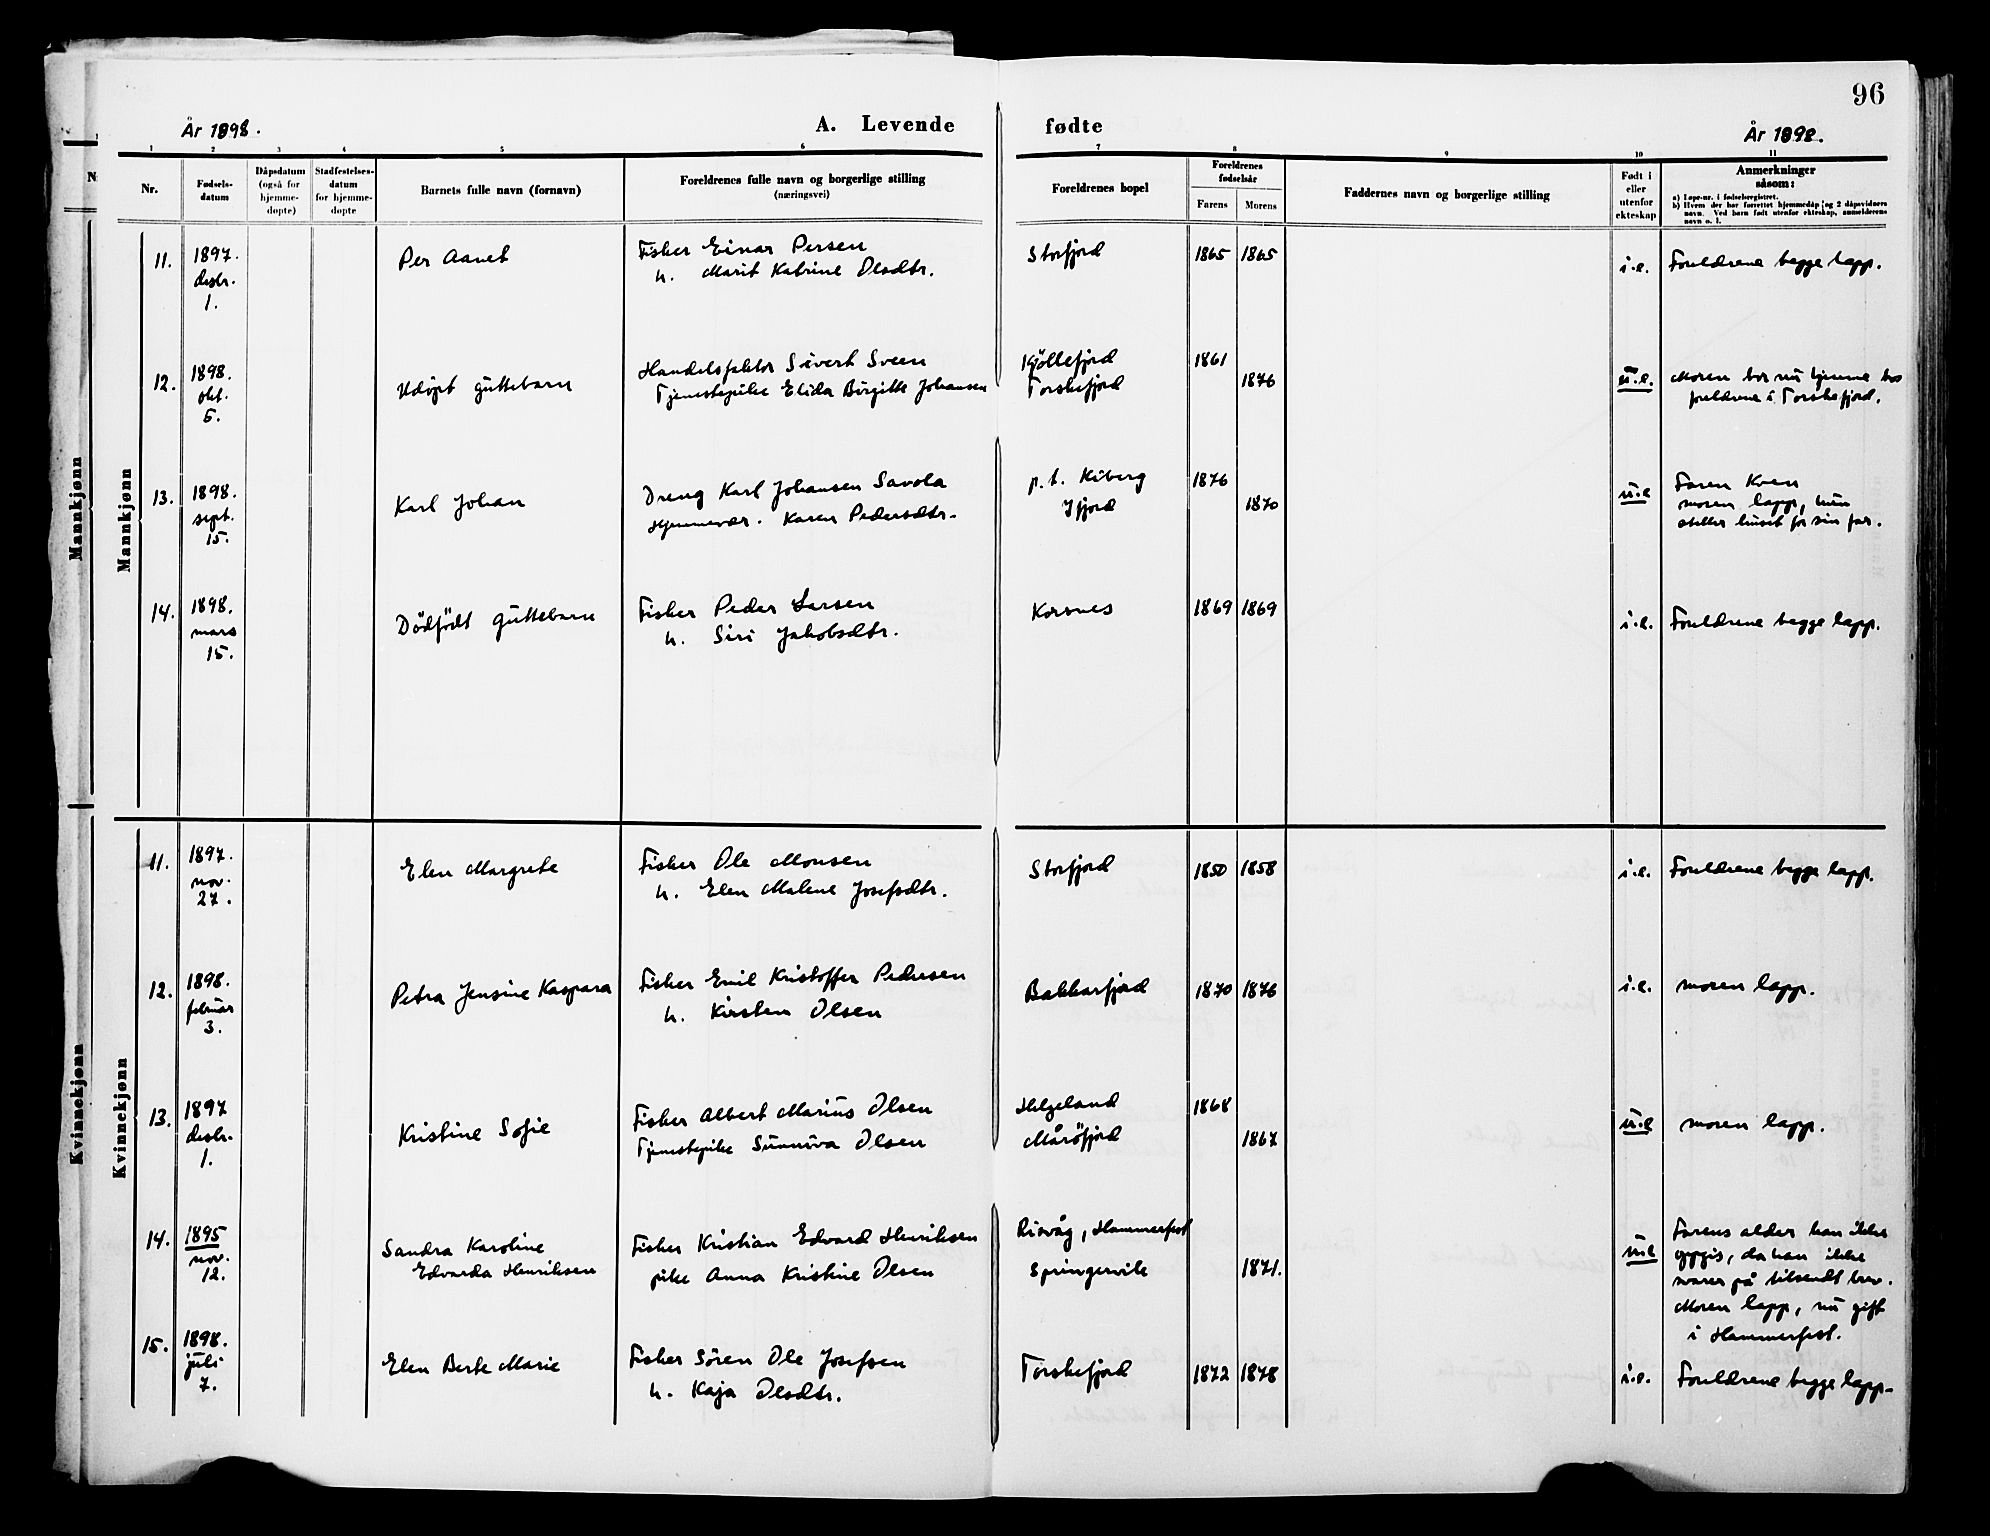 96
År 1898.
A. Levende fødte
År 1898.
1 2 3 4 5 6 7 8 9 10 11
Nr.
Fødsels-
datum
Dåpsdatum
(også for
hjemme-
døpte)
Stadfestelses-
datum
for hjemme-
døpte
Barnets fulle navn (fornavn)
Foreldrenes fulle navn og borgerlige stilling
(næringsvei)
Foreldrenes bopel
Foreldrenes
fødselsår
Farens Morens
Faddernes navn og borgerlige stilling
Født i
eller
utenfor
ekteskap
Anmerkninger
såsom:
a) Løpe-nr. i fødselsregistret.
b) Hvem der har forrettet hjemmedåp og 2 dåpsvidners
navn. Ved barn født utenfor ekteskap, anmelderens
navn o. l.
N
Mannkjønn
Mannkjønn
11.
1897.
desbr.
1.
Per Aanet
Fisker Einar Persen
h. Marit Katrine Olsdtr.
Storfjord
1865 1865
i.e.
Foreldrene begge lapp.
12.
1898.
okt.
6.
Udöpt guttebarn
Handelsfaktor Sivert Sveen
Tjenestepike Elida Birgitte Johansen
Kjöllefjord
Torskefjord
1861
1876
u.e.
Moren bor nu hjemme hos
foreldrene i Torskefjord.
13.
1898.
sept.
15.
Karl Johan
Dreng Karl Johansen Savola
Hjemmevær. Karen Pedersdtr.
p.t. Kiberg
Ifjord
1876
1870
u.e
Faren Kven
moren lapp, hun
steller huset for sin far.
14.
1898.
mars
15.
Dödfödt guttebarn
Fisker Peder Larsen
h. Siri Jakobsdtr.
Korsnes
1869 1869
i.e.
Foreldrene begge lapp.
Kvinnekjønn
Kvinnekjønn
11.
1897.
nov.
27.
Elen Margrete
Fisker Ole Monsen
h. Elen Malene Josefsdtr.
Storfjord
1850 1858
i.e.
Foreldrene begge lapp.
12.
1898.
februar
3.
Petra Jensine Kaspara
Fisker Emil Kristoffer Pedersen
h. Kirsten Olsen
Bakkarfjord
1870 1876
i.e.
moren lapp.
13.
1897
desbr.
1.
Kristine Sofie
Fisker Albert Marius Olsen
Tjenestepike Sunniva Olsen
Helgeland
Måröfjord
1868
1867
u.e
moren lapp.
14.
1895
nov.
12.
Sandra Karoline
Edvarda Henriksen
Fisker Kristian Edvard Henriksen
pike Anna Kristine Olsen
Risvåg, Hammerfest
Springervik
1871.
u.e
Farens alder kan ikke
opgis, da han ikke
svarer på tilsendt brev.
Moren lapp, nu gift
i Hammerfest.
15.
1898.
juli
7.
Elen Berte Marie
Fisker Sören Ole Josefsen
h. Kaja Olsdtr.
Torskefjord
1872 1878
i.e.
Foreldrene begge lapp.